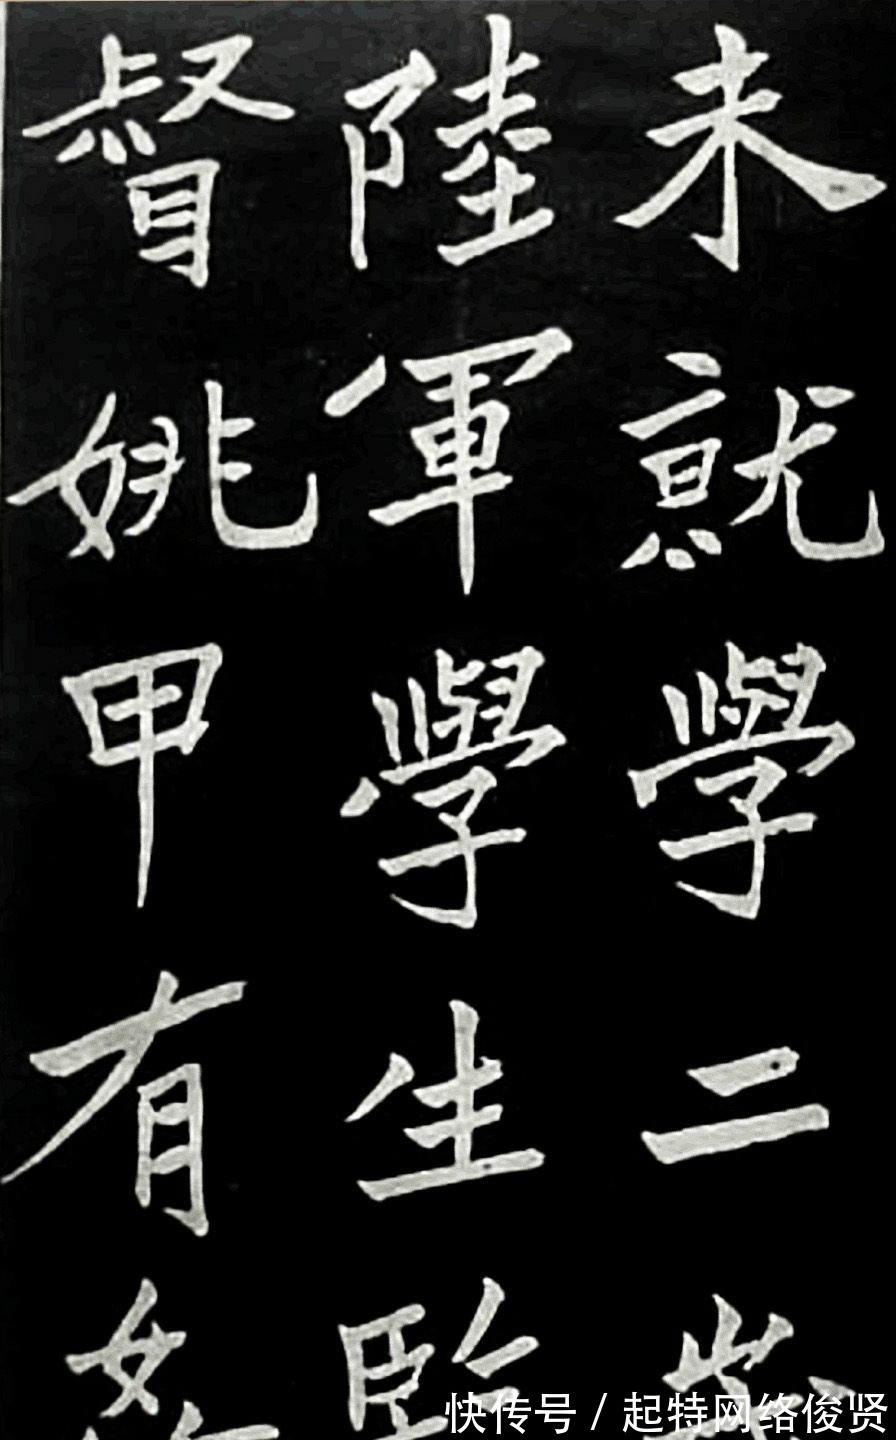 未就學二
陸軍學生監
督姚甲有
快传号 / 起特网络俊贤